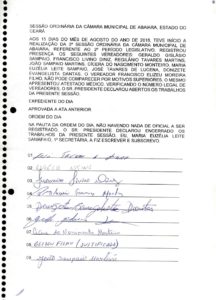 SESSÃO ORDINÁRIA DA CÂMARA MUNICIPAL DE ABAIARA, ESTADO DO
CEARÁ
AOS 15 DIAS DO MÊS DE AGOSTO DO ANO DE 2018, TEVE INÍCIO A
REALIZAÇÃO DA 2ª SESSÃO ORDINÁRIA DA CÂMARA MUNICIPAL DE
ABAIARA, REFERENTE AO 2º PERÍODO LEGISLATIVO. REGISTROU
PRESENÇA OS SEGUINTES VEREADORES: GERALDO
SAMPAIO, FRANCISCO LIVINO DINIZ, REGILÂNIO TAVARES MARTINS,
JOÃO SAMPAIO MARTINS, CÍCERA DO NASCIMENTO MONTEIRO, MARIA
EUZÉLIA LEITE SAMPAIO, JOSÉ TAVARES DE LUCENA, DONIZETE
EVANGELISTA DANTAS. O VEREADOR FRANCISCO ELIZEU MOREIRA
FILHO, NÃO PODE COMPARECER POR MOTIVOS SUPERIORES. O MESMO
APRESENTOU ATESTADO MÉDICO. VERIFICANDO O NÚMERO LEGAL DE
VEREADORES, O SR. PRESIDENTE DECLAROU ABERTOS OS TRABALHOS
DA PRESENTE SESSÃO.
EXPEDIENTE DO DIA
APROVADA A ATA ANTERIOR
ORDEM DO DIA
NA PAUTA DA ORDEM DO DIA, NÃO HAVENDO NADA DE OFICIAL A SER
REGISTRADO, O SR. PRESIDENTE DECLAROU ENCERRADO OS
TRABALHOS DA PRESENTE SESSÃO. EU, MARIA EUZÉLIA LEITE
SAMPAIO, 1ª SECRETÁRIA, A FIZ ESCREVER E SUBSCREVO.
01
02
03 Francisco Livino Diniz
04
05 Donizete Evangelista Dantas
06
07 do Nascimento Monteiro
08 ELIZEU FILHO (JUSTIFICADA)
09 João Sampaio Martins